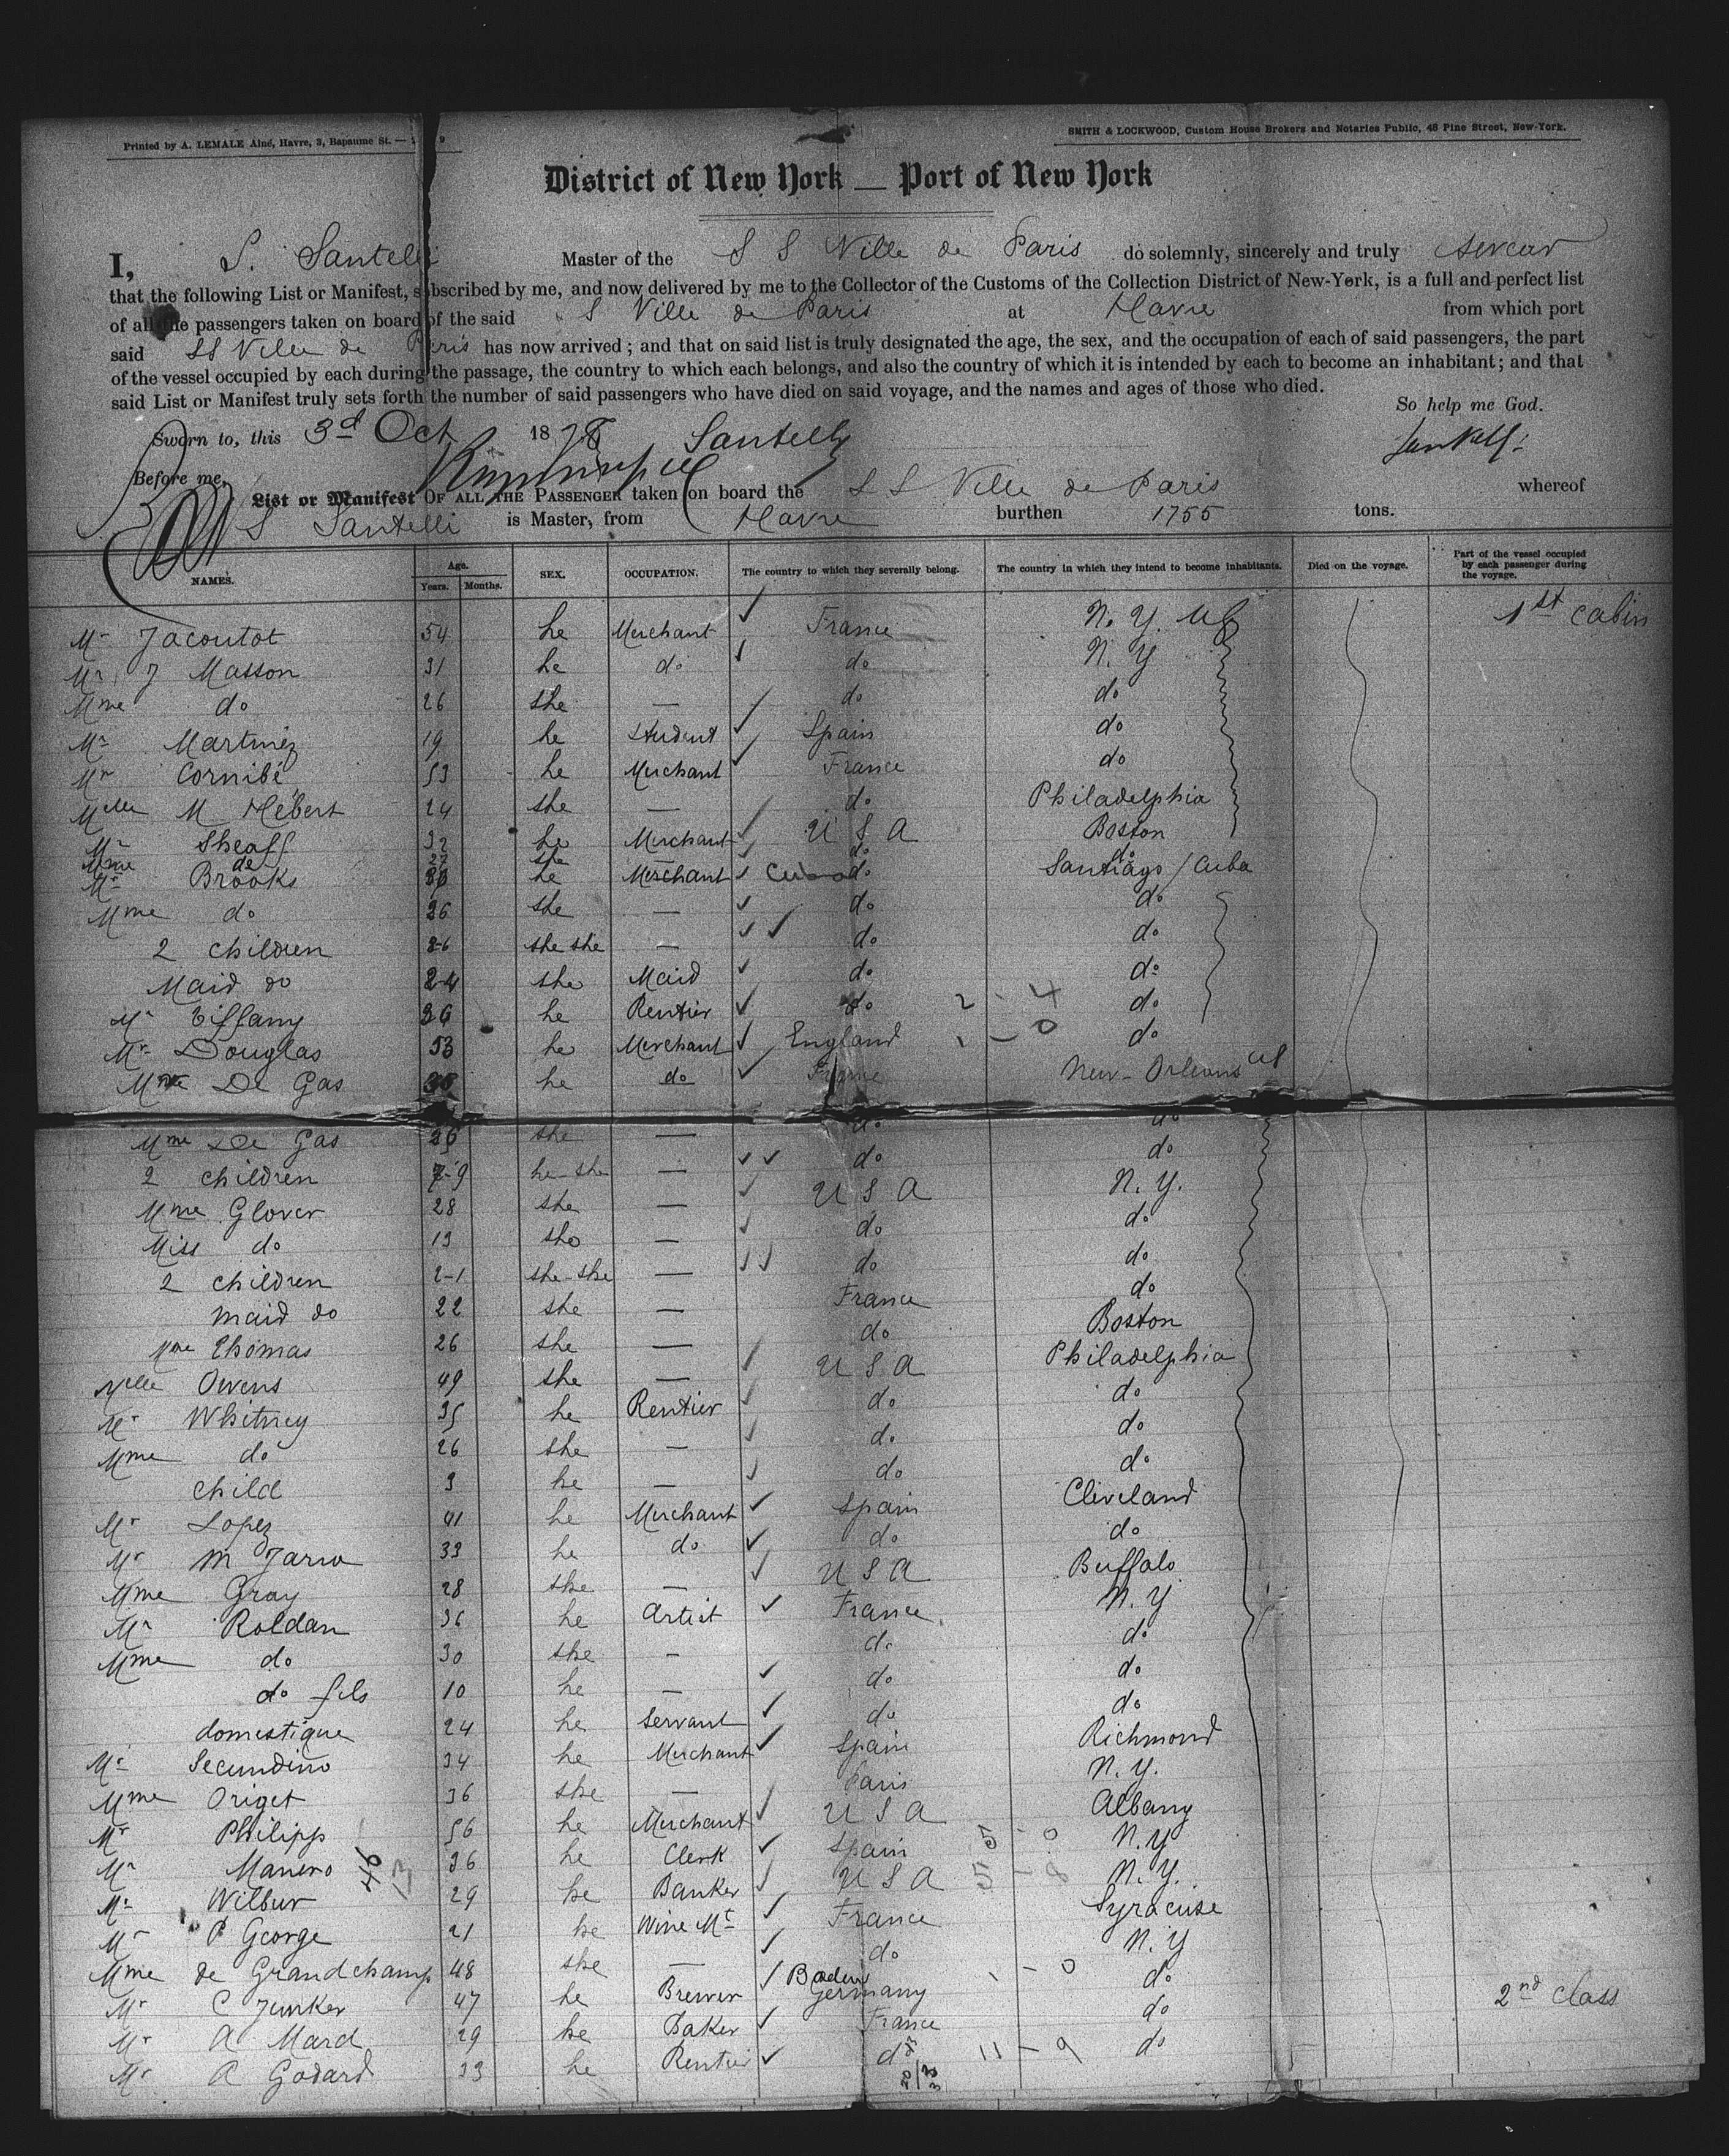 Printed by A. LEMALE Aîné, Havre, 3, Bapaume St. — 9
SMITH & LOCKWOOD, Custom House Brokers and Notaries Public, 48 Pine Street, New-York.
District of New York — Port of New York
I, S. Santelli Master of the S S Ville de Paris do solemnly, sincerely and truly swear
that the following List or Manifest, subscribed by me, and now delivered by me to the Collector of the Customs of the Collection District of New-York, is a full and perfect list
of all the passengers taken on board of the said S Ville de Paris at Havre from which port
said SS Ville de Paris has now arrived ; and that on said list is truly designated the age, the sex, and the occupation of each of said passengers, the part
of the vessel occupied by each during the passage, the country to which each belongs, and also the country of which it is intended by each to become an inhabitant ; and that
said List or Manifest truly sets forth the number of said passengers who have died on said voyage, and the names and ages of those who died.
So help me God.
Sworn to, this 3d Oct 1878 Santelli
Before me,
List or Manifest OF ALL THE PASSENGER taken on board the S S Ville de Paris whereof
S Santelli is Master, from Havre burthen 1755 tons.
NAMES. Age. Years. Months. SEX. OCCUPATION. The country to which they severally belong. The country in which they intend to become inhabitants. Died on the voyage. Part of the vessel occupied by each passenger during the voyage.
Mr Jacoutot 54 he Merchant France N. Y. US 1st Cabin
Mr J Masson 31 he do do N. Y
Mme do 26 she — do do
Mr Martinez 19 he Student Spain do
Mr Cornibé 53 he Merchant France do
Melle M Hébert 24 she — do Philadelphia
Mr Sheaff 32 he Merchant U S A Boston
Mme de 27 she — do do
Mr Brooks 30 he Merchant Cuba do Santiago / Cuba
Mme do 26 she — do do
2 children 8-6 she she — do do
Maid do 24 she Maid do do
Mr Tiffany 26 he Rentier do 2 - 4 do
Mr Douglas 53 he Merchant England 1 - 0 do
Mr De Gas he do France New-Orleans US
Mme De Gas 26 she — do do
2 children 7-9 he-she — do do
Mme Glover 28 she — U S A N. Y.
Miss do 13 she — do do
2 children 2-1 she-she — do do
maid do 22 she — France do
Mme Thomas 26 she — do Boston
Melle Owens 49 she — U S A Philadelphia
Mr Whitney 35 he Rentier do do
Mme do 26 she — do do
child 3 he — do do
Mr Lopez 41 he Merchant Spain Cleveland
Mr M Jario 33 he do do do
Mme Gray 28 she — U S A Buffalo
Mr Roldan 36 he Artist France N. Y
Mme do 30 she — do do
do fils 10 he — do do
domestique 24 he Servant do do
Mr Secundino 34 he Merchant Spain Richmond
Mme Origet 36 she — Paris N. Y.
Mr Philipp 56 he Merchant U S A Albany
Mr Manero 36 he Clerk Spain N. Y
Mr Wilbur 29 he Banker U S A N. Y.
Mr P George 21 he Wine Mt France Syracuse
Mme de Grandchamp 48 she — do N. Y
Mr C Junker 47 he Brewer Baden Germany 1 - 0 do 2nd class
Mr A Mard 29 he Baker France do
Mr A Godard 33 he Rentier do 11 - 9 do